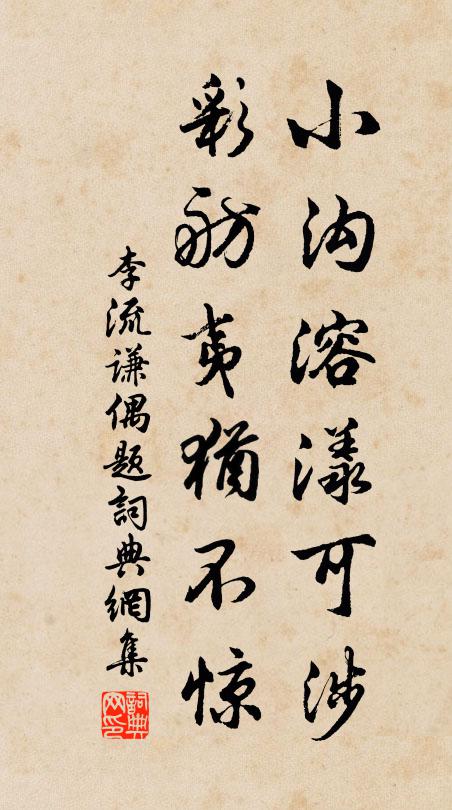 小沟溶漾可涉
彩舫夷犹不惊
李流谦偶题詞典網集
詞典网印